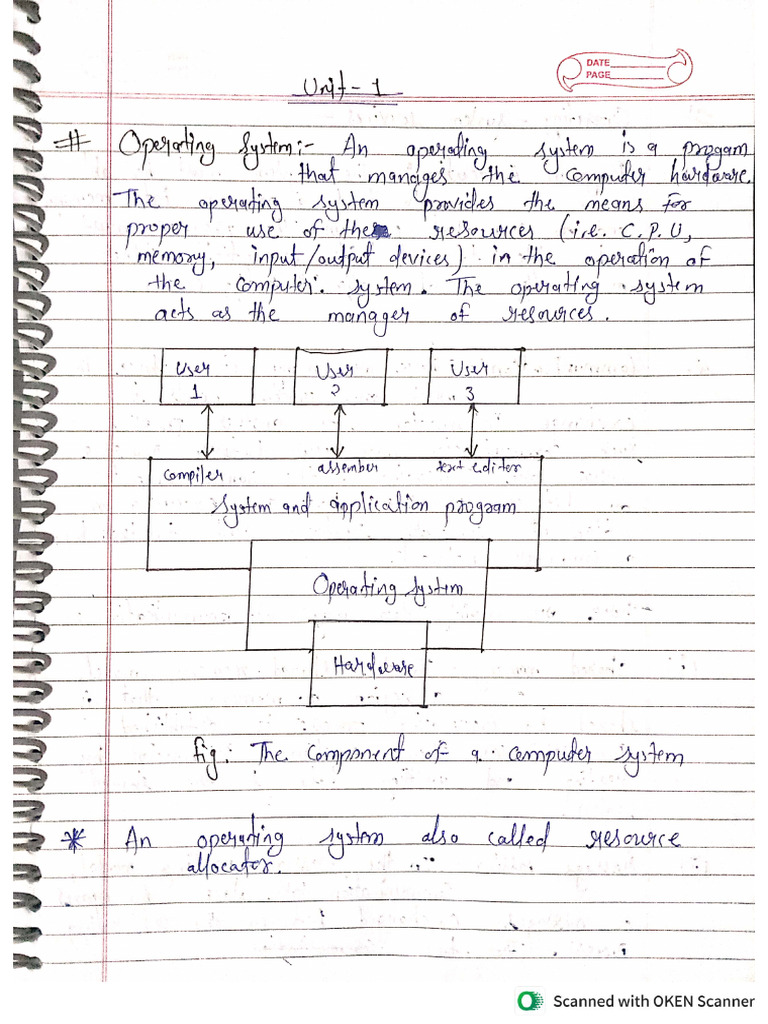 DATE
PAGE
Unit - 1
# Operating System:- An operating system is a progam
that manages the computer hardware
The operating system provides the means for
proper use of the resources (i.e. C.P.U,
memory, input/output devices) in the operation of
the computer system. The operating system
acts as the manager of resources.
User User User
1 2 3
compiler assember text editor
system and application program
Operating System
Hardware
fig: The Component of a computer system
* An operating system also called resource
allocator.
Scanned with OKEN Scanner